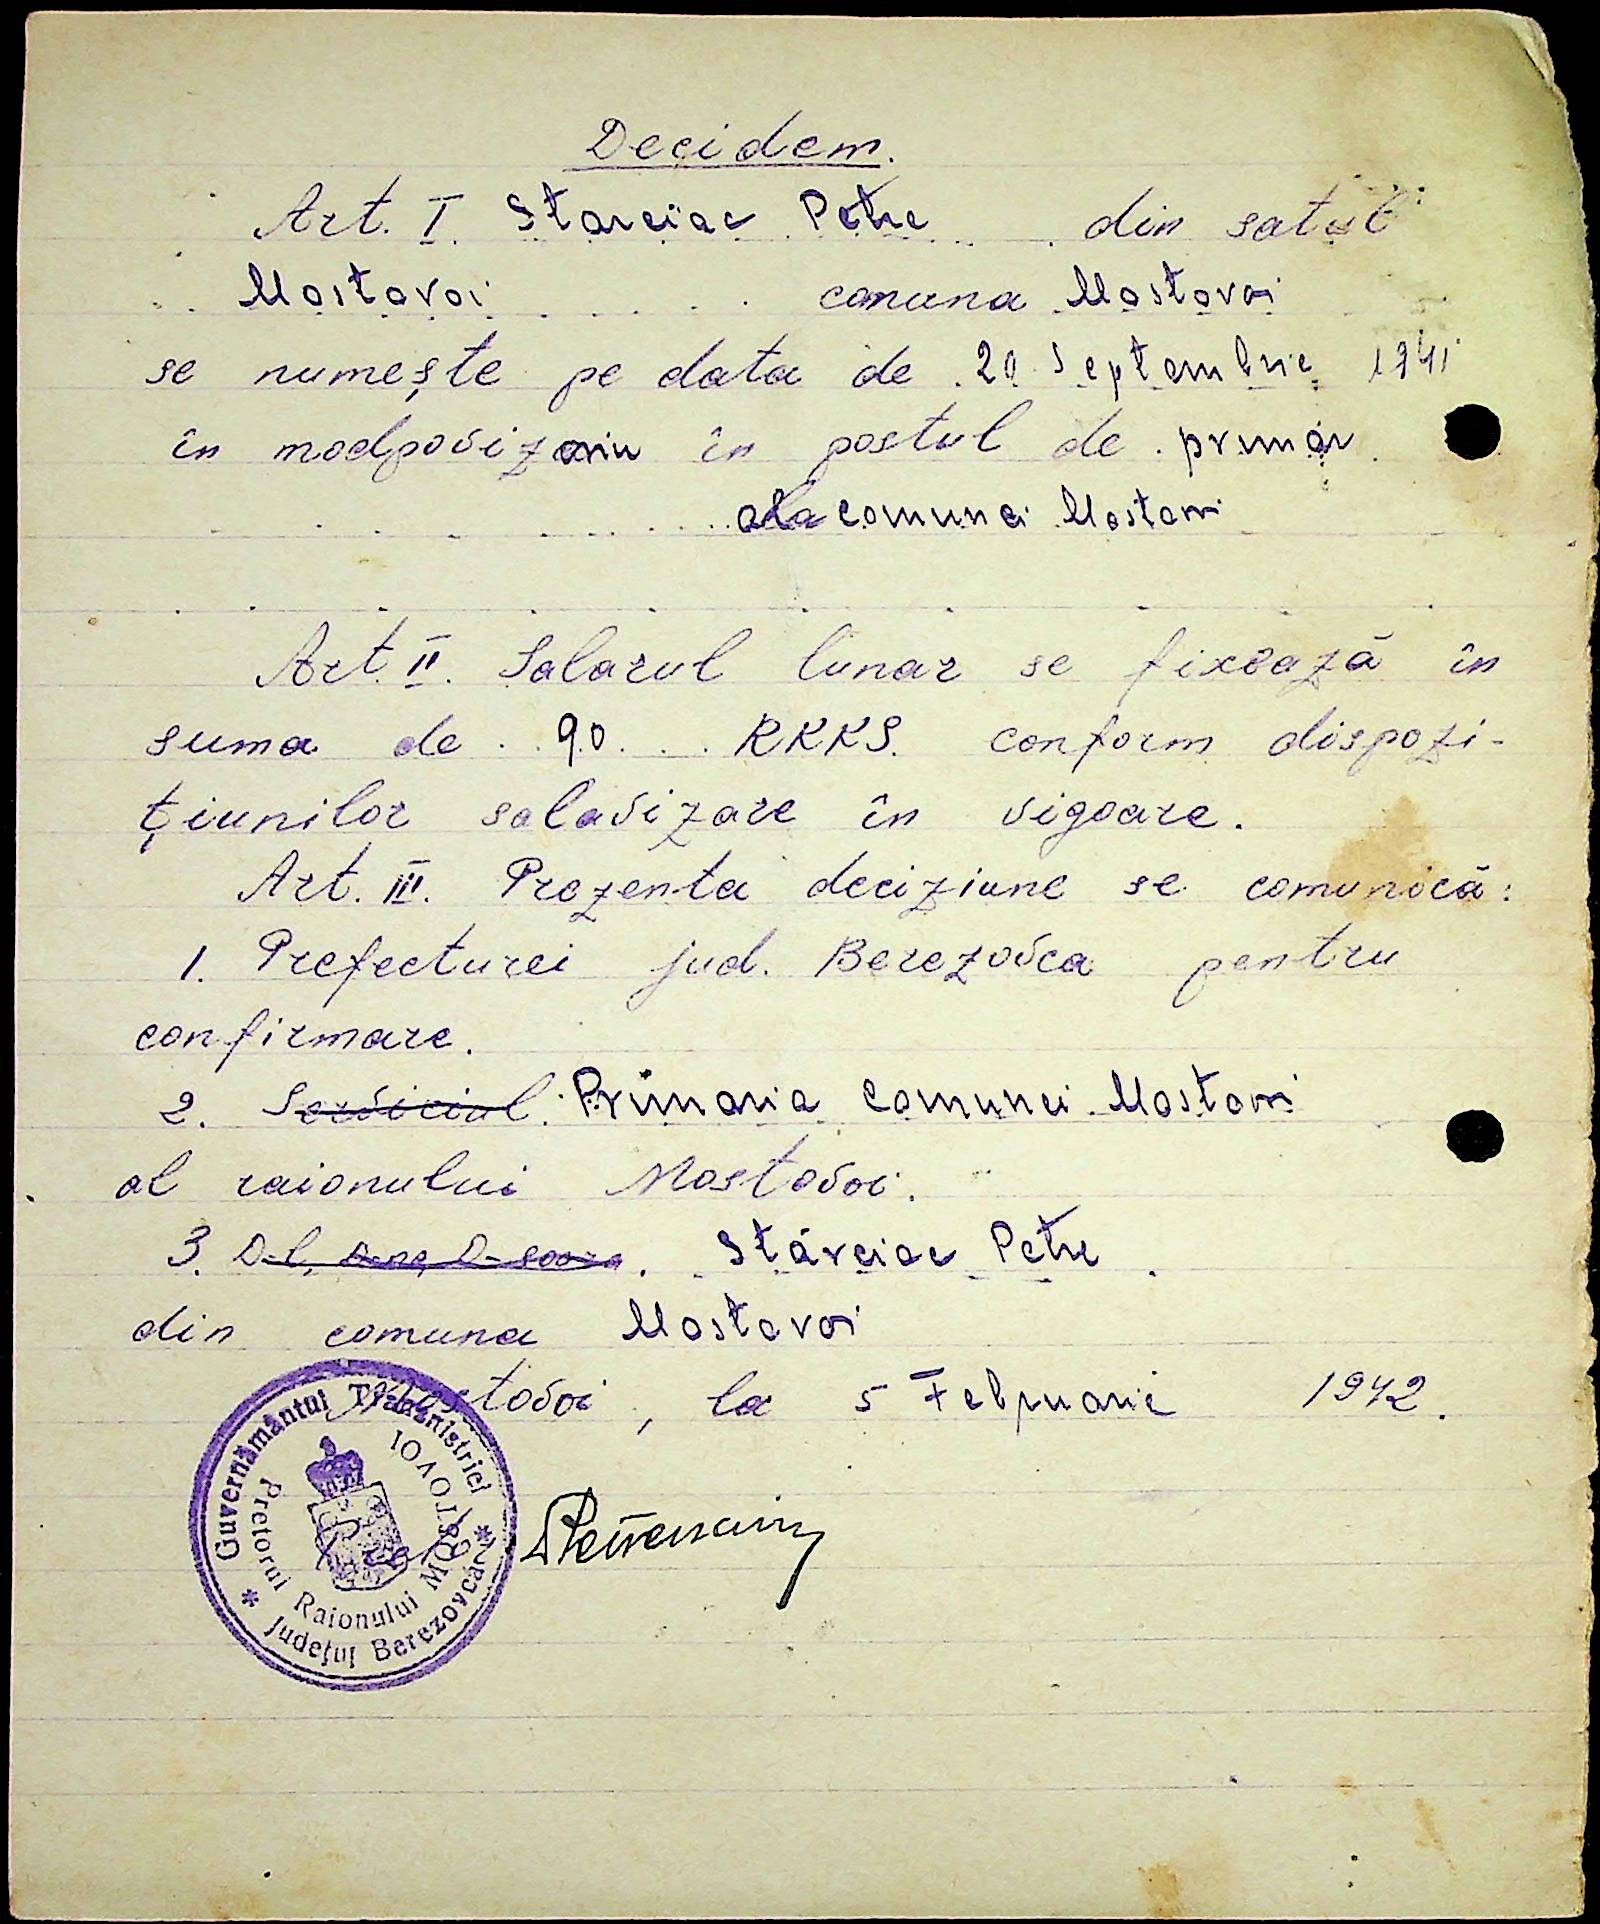 Decidem.
Art. I. Starciac Petre din satul
Mostovoi comuna Mostovoi
se numește pe data de 20 Septembrie 1941
în modpovizoriu în postul de primar
ala comunei Mostovoi
Art. II. Salarul lunar se fixează în
suma de 90 RKKS. conform dispozi-
țiunilor salavizare în vigoare.
Art. III. Prezenta deciziune se comunică:
1. Prefecturei jud. Berezovca pentru
confirmare.
2. Serviciul Primaria Comunei Mostovoi
al raionului Mostovoi.
3. D-l, D-na, D-șoara. Stărciac Petre
din comuna Mostovoi
Mostovoi, la 5 Februarie 1942.
Guvernământul Transnistriei
Pretorul Raionului MOSTOVOI
* Județul Berezovca *